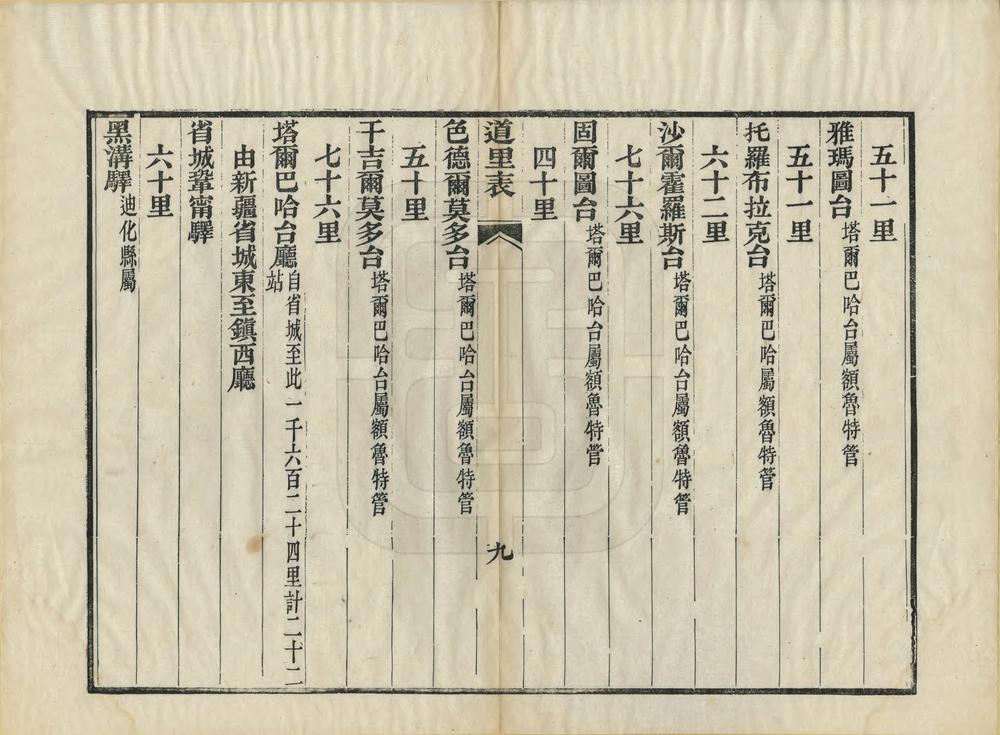 五十一里
雅瑪圖台塔爾巴哈台屬額魯特管
五十一里
托羅布拉克台塔爾巴哈屬額魯特管
六十二里
沙爾霍羅斯台塔爾巴哈台屬額魯特管
七十六里
固爾圖台塔爾巴哈台屬額魯特管
四十里
道里表
九
色德爾莫多台塔爾巴哈台屬額魯特管
五十里
干吉爾莫多台塔爾巴哈台屬額魯特管
七十六里
塔爾巴哈台廳自省城至此一千六百二十四里計二十二
站
由新疆省城東至鎮西廳
省城鞏甯驛
六十里
黑溝驛迪化縣屬